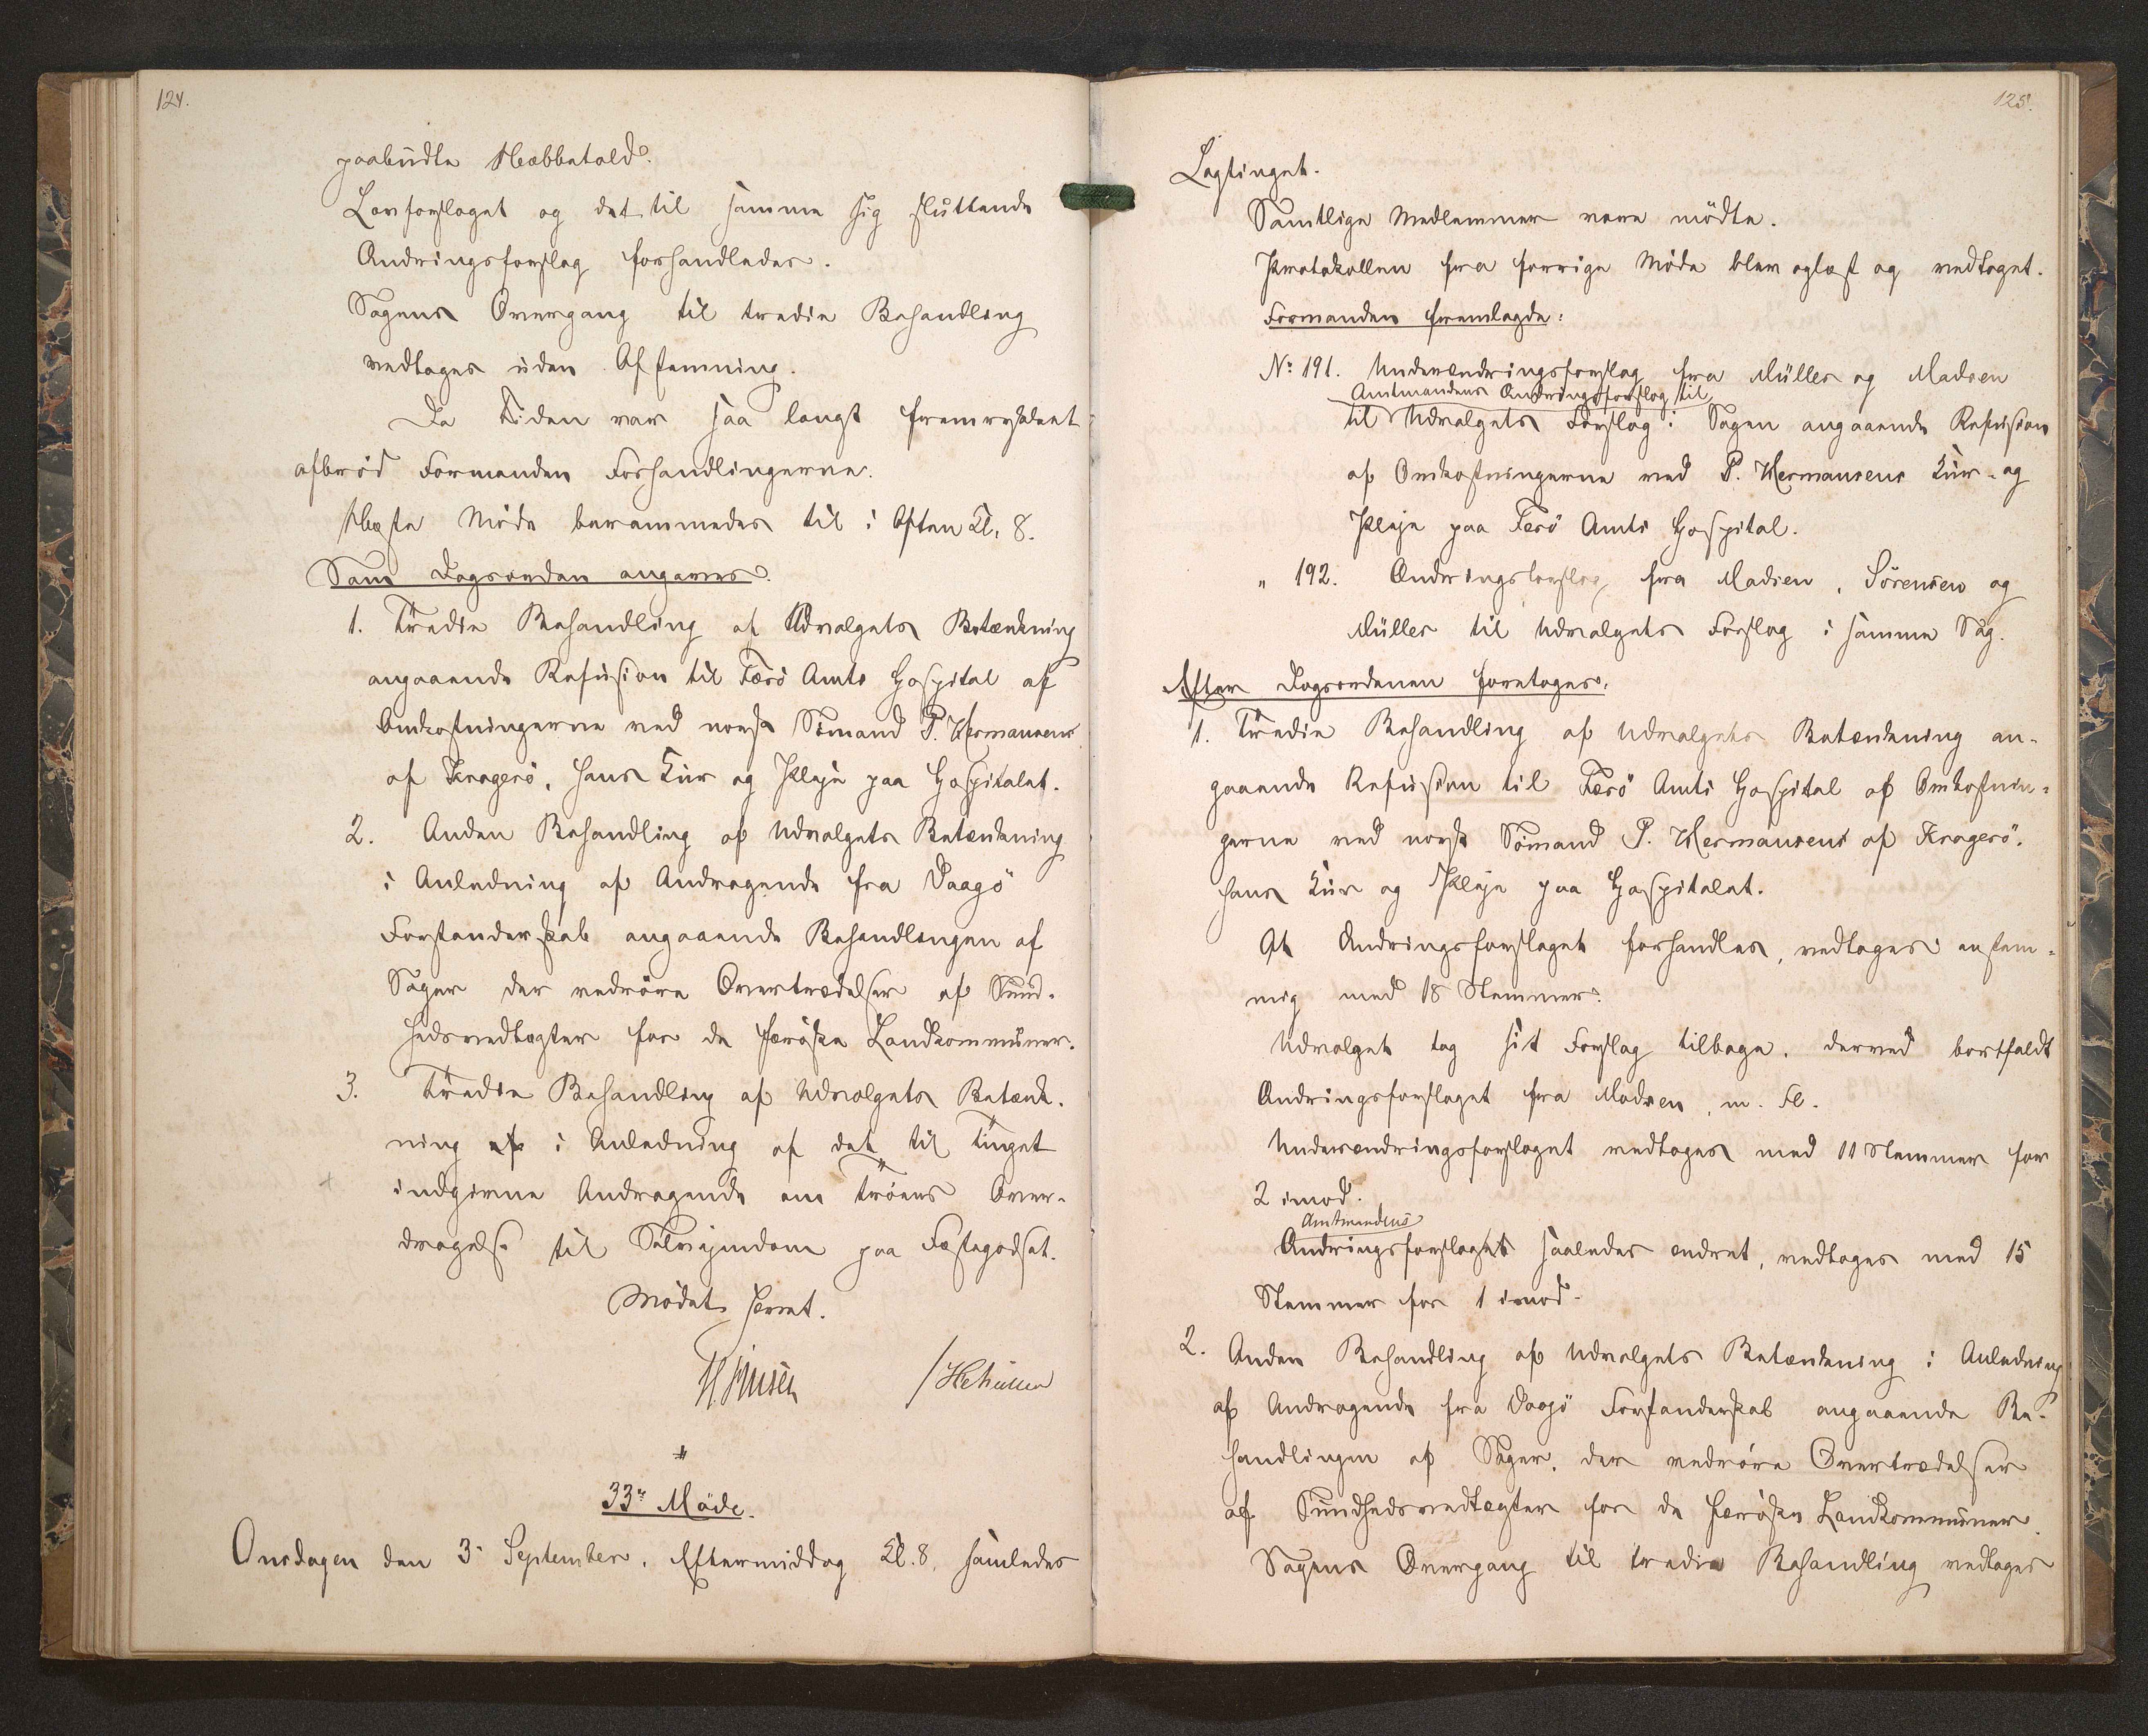 124.
paabudte Næbbetold.
Lovforslaget og det til samme sig sluttende
Ændringsforslag forhandledes.
Sagens Overgang til tredie Behandling
vedtages uden Afstemning.
Da Tiden var saa langt fremrykket
afbrød Formanden Forhandlingerne.
Næste Møde berammedes til i Aften Kl. 8.
Som Dagsorden angaves:
1. Tredie Behandling af Udvalgets Betænkning
angaaende Refusion til Færö Amts Hospital af
Omkostningerne ved norsk Sömand P. Hermansens
af Kragerö, hans Kur og Pleje paa Hospitalet.
2. Anden Behandling af Udvalgets Betænkning
i Anledning af Andragende fra Vaagö
Forstanderskab angaaende Behandlingen af
Sager der vedröre Overtrædelser af Sund-
hedsvedtægter for de færöske Landkommuner.
3. Tredie Behandling af Udvalgets Betænk-
ning af i Anledning af det til Tinget
indgivne Andragende om Tröens Over-
dragelse til Selvejendom paa Fæstegodset.
Mödet hævet.
/HCMüller
33te Møde.
Onsdagen den 3. September, Eftermiddag Kl. 8, samledes
125.
Lagtinget.
Samtlige Medlemmer vare mödte.
Protokollen fra forrige Møde blev oplæst og vedtaget.
Formanden fremlagde:
No 191. Underændringsforslag fra Müller og Madsen
Amtmandens Ændringsforslag til
til Udvalgets Forslag i Sagen angaaende Refusion
af Omkostningerne ved P. Hermansens Kur- og
Pleje paa Færö Amts Hospital.
" 192. Ændringsforslag fra Madsen, Sörensen og
Müller til Udvalgets Forslag i samme Sag.
Efter Dagsordenen foretoges:
1. Tredie Behandling af Udvalgets Betænkning an-
gaaende Refusion til Færö Amts Hospital af Omkostnin-
gerne ved norsk Sömand P. Hermansens af Kragerö,
hans Kur og Pleje paa Hospitalet.
At Ændringsforslaget forhandles, vedtages enstem-
mig med 18 Stemmer.
Udvalget tog sit Forslag tilbage, derved bortfaldt
Ændringsforslaget fra Madsen, m. Fl.
Underændringsforslaget vedtages med 11 Stemmer for
2 imod.
Amtmandens
Ændringsforslaget saaledes ændret, vedtages med 15
Stemmer for 1 imod.
2. Anden Behandling af Udvalgets Betænkning i Anledning
af Andragende fra Vaagö Forstanderskab angaaende Be-
handlingen af Sager, der vedröre Overtrædelser
af Sundhedsvedtægter for de færöske Landkommuner.
Sagens Overgang til tredie Behandling vedtages